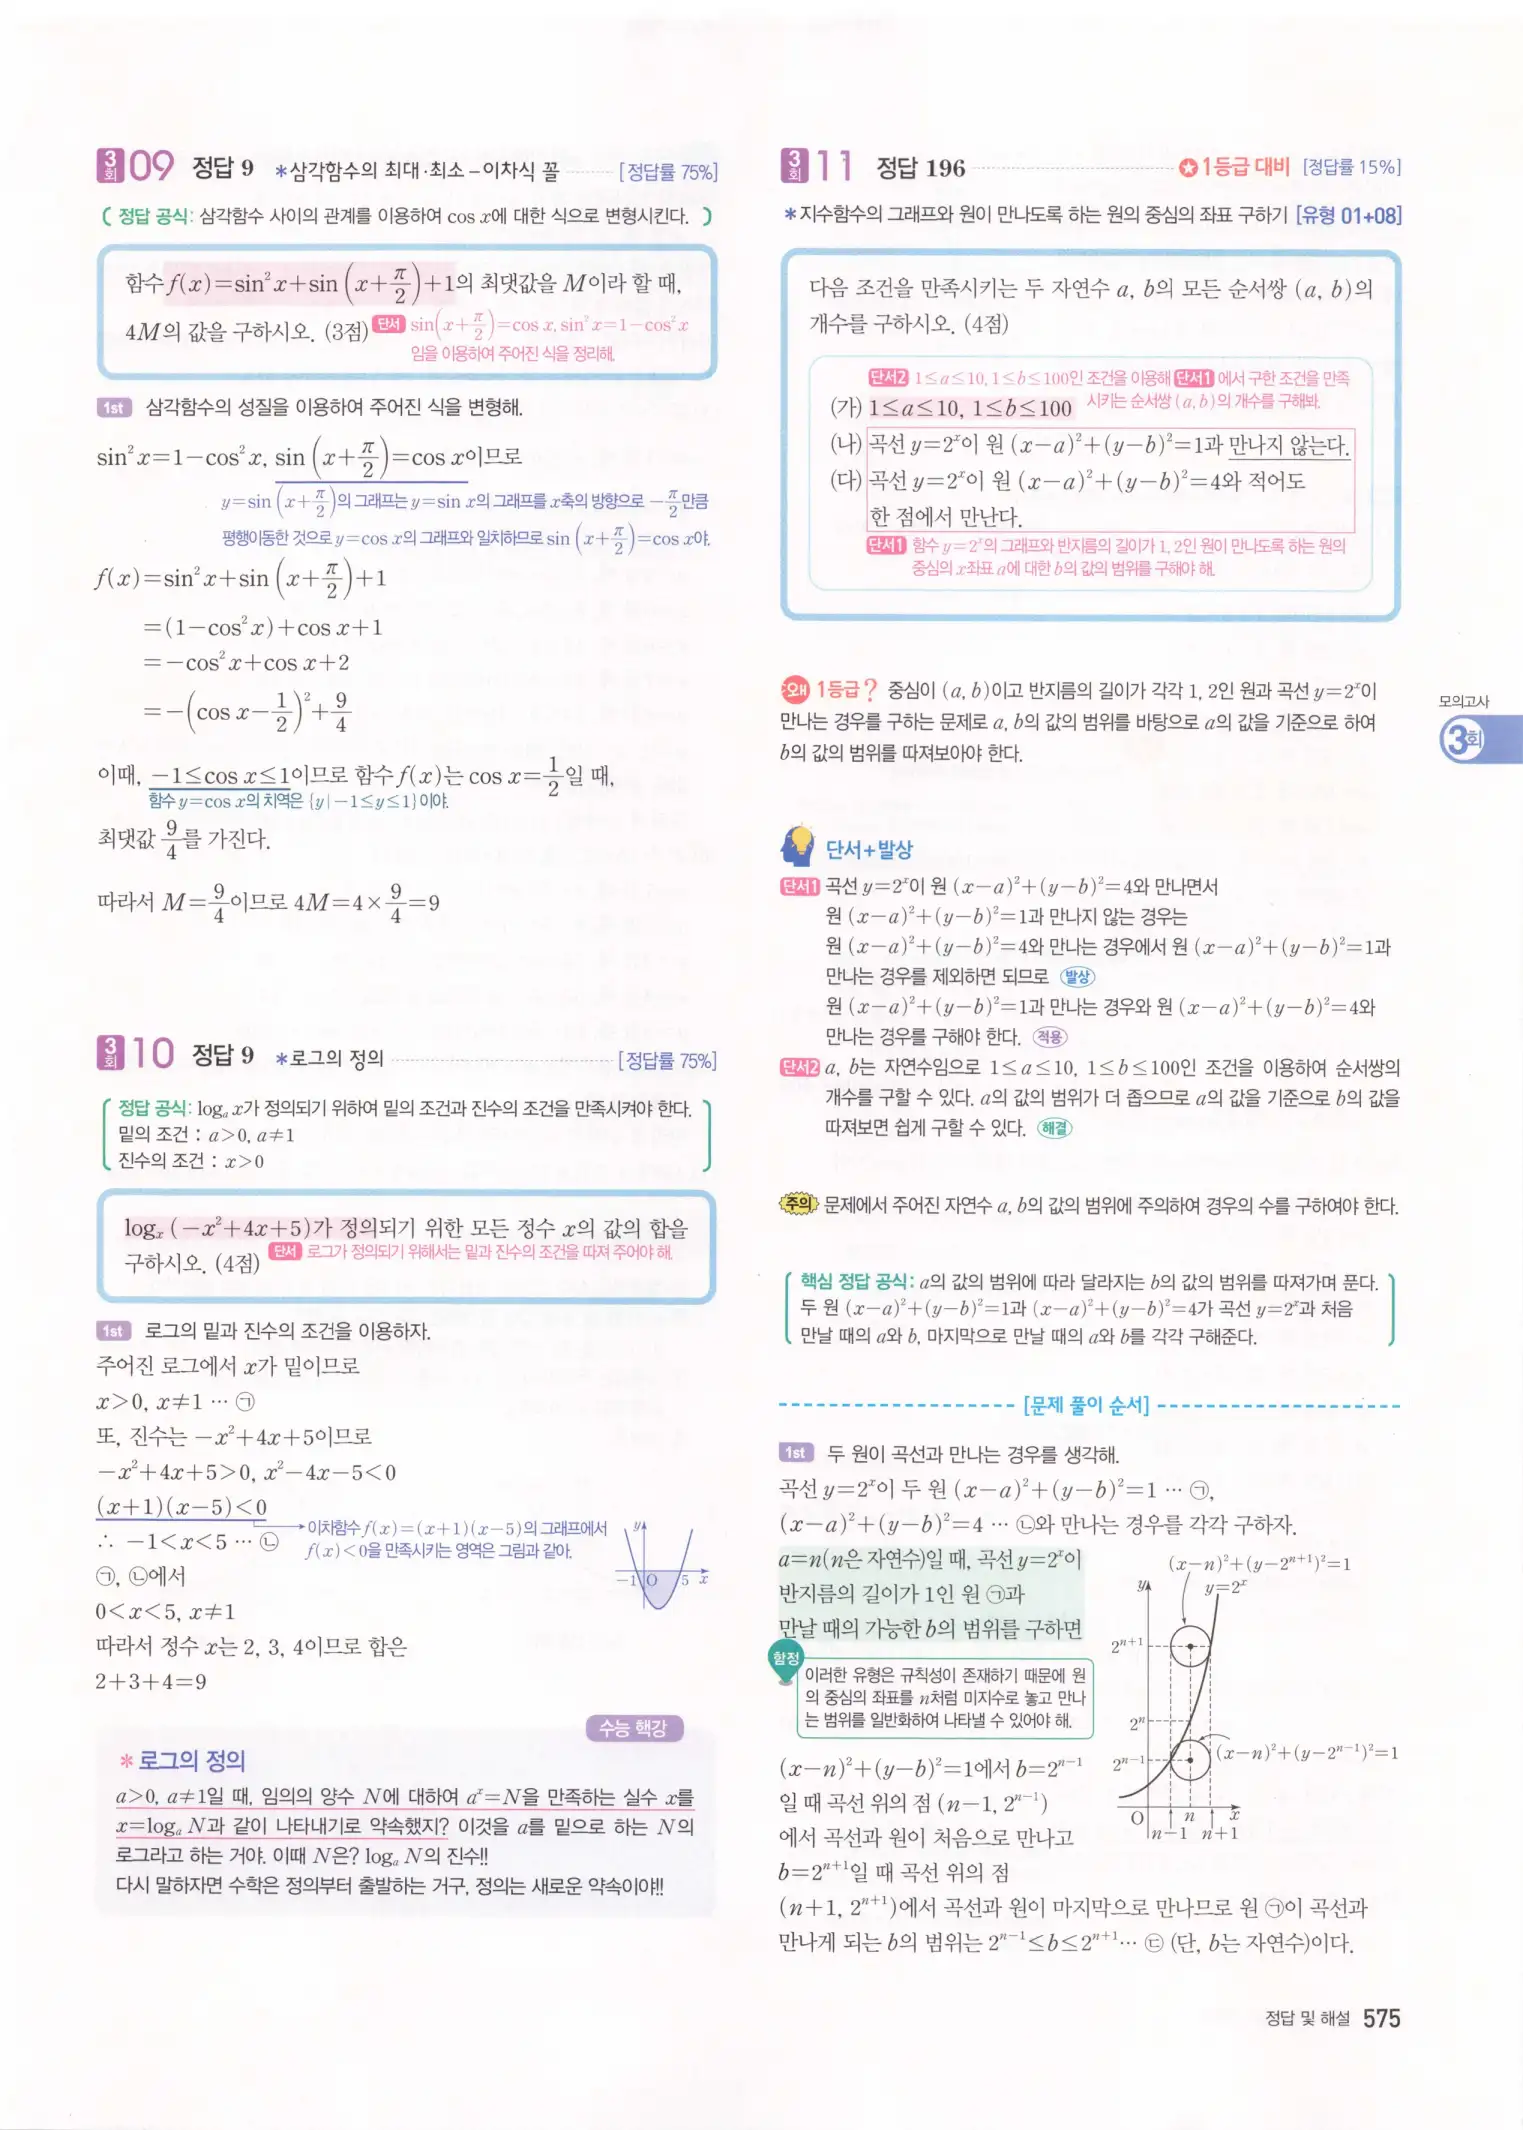 3회 09 정답 9 *삼각함수의 최대·최소-이차식 꼴 [정답률 75%]
( 정답 공식: 삼각함수 사이의 관계를 이용하여 cos x에 대한 식으로 변형시킨다. )
함수 f(x)=sin²x+sin(x+π/2)+1의 최댓값을 M이라 할 때,
4M의 값을 구하시오. (3점) 단서 sin(x+π/2)=cos x, sin²x=1-cos²x
임을 이용하여 주어진 식을 정리해.
1st 삼각함수의 성질을 이용하여 주어진 식을 변형해.
sin²x=1-cos²x, sin(x+π/2)=cos x이므로
y=sin(x+π/2)의 그래프는 y=sin x의 그래프를 x축의 방향으로 -π/2만큼
평행이동한 것으로 y=cos x의 그래프와 일치하므로 sin(x+π/2)=cos x야.
f(x)=sin²x+sin(x+π/2)+1
=(1-cos²x)+cos x+1
=-cos²x+cos x+2
=-(cos x-1/2)²+9/4
이때, -1≤cos x≤1이므로 함수 f(x)는 cos x=1/2일 때,
함수 y=cos x의 치역은 {y|-1≤y≤1}이야.
최댓값 9/4를 가진다.
따라서 M=9/4이므로 4M=4×9/4=9
3회 10 정답 9 *로그의 정의 [정답률 75%]
정답 공식: logₐ x가 정의되기 위하여 밑의 조건과 진수의 조건을 만족시켜야 한다.
밑의 조건 : a>0, a≠1
진수의 조건 : x>0
logₓ (-x²+4x+5)가 정의되기 위한 모든 정수 x의 값의 합을
구하시오. (4점) 단서 로그가 정의되기 위해서는 밑과 진수의 조건을 따져 주어야 해.
1st 로그의 밑과 진수의 조건을 이용하자.
주어진 로그에서 x가 밑이므로
x>0, x≠1 … ㉠
또, 진수는 -x²+4x+5이므로
-x²+4x+5>0, x²-4x-5<0
(x+1)(x-5)<0
∴ -1<x<5 … ㉡
이차함수 f(x)=(x+1)(x-5)의 그래프에서
f(x)<0을 만족시키는 영역은 그림과 같아.
y
-1 O 5 x
㉠, ㉡에서
0<x<5, x≠1
따라서 정수 x는 2, 3, 4이므로 합은
2+3+4=9
수능 핵강
* 로그의 정의
a>0, a≠1일 때, 임의의 양수 N에 대하여 aˣ=N을 만족하는 실수 x를
x=logₐ N과 같이 나타내기로 약속했지? 이것을 a를 밑으로 하는 N의
로그라고 하는 거야. 이때 N은? logₐ N의 진수!!
다시 말하자면 수학은 정의부터 출발하는 거구, 정의는 새로운 약속이야!!
3회 11 정답 196 1등급 대비 [정답률 15%]
*지수함수의 그래프와 원이 만나도록 하는 원의 중심의 좌표 구하기 [유형 01+08]
다음 조건을 만족시키는 두 자연수 a, b의 모든 순서쌍 (a, b)의
개수를 구하시오. (4점)
단서2 1≤a≤10, 1≤b≤100인 조건을 이용해 단서1 에서 구한 조건을 만족
시키는 순서쌍 (a, b)의 개수를 구해봐.
(가) 1≤a≤10, 1≤b≤100
(나) 곡선 y=2ˣ이 원 (x-a)²+(y-b)²=1과 만나지 않는다.
(다) 곡선 y=2ˣ이 원 (x-a)²+(y-b)²=4와 적어도
한 점에서 만난다.
단서1 함수 y=2ˣ의 그래프와 반지름의 길이가 1, 2인 원이 만나도록 하는 원의
중심의 x좌표 a에 대한 b의 값의 범위를 구해야 해.
왜 1등급? 중심이 (a, b)이고 반지름의 길이가 각각 1, 2인 원과 곡선 y=2ˣ이
만나는 경우를 구하는 문제로 a, b의 값의 범위를 바탕으로 a의 값을 기준으로 하여
b의 값의 범위를 따져보아야 한다.
단서+발상
단서1 곡선 y=2ˣ이 원 (x-a)²+(y-b)²=4와 만나면서
원 (x-a)²+(y-b)²=1과 만나지 않는 경우는
원 (x-a)²+(y-b)²=4와 만나는 경우에서 원 (x-a)²+(y-b)²=1과
만나는 경우를 제외하면 되므로 발상
원 (x-a)²+(y-b)²=1과 만나는 경우와 원 (x-a)²+(y-b)²=4와
만나는 경우를 구해야 한다. 적용
단서2 a, b는 자연수임으로 1≤a≤10, 1≤b≤100인 조건을 이용하여 순서쌍의
개수를 구할 수 있다. a의 값의 범위가 더 좁으므로 a의 값을 기준으로 b의 값을
따져보면 쉽게 구할 수 있다. 해결
주의 문제에서 주어진 자연수 a, b의 값의 범위에 주의하여 경우의 수를 구하여야 한다.
핵심 정답 공식: a의 값의 범위에 따라 달라지는 b의 값의 범위를 따져가며 푼다.
두 원 (x-a)²+(y-b)²=1과 (x-a)²+(y-b)²=4가 곡선 y=2ˣ과 처음
만날 때의 a와 b, 마지막으로 만날 때의 a와 b를 각각 구해준다.
[문제 풀이 순서]
1st 두 원이 곡선과 만나는 경우를 생각해.
곡선 y=2ˣ이 두 원 (x-a)²+(y-b)²=1 … ㉠,
(x-a)²+(y-b)²=4 … ㉡와 만나는 경우를 각각 구하자.
a=n(n은 자연수)일 때, 곡선 y=2ˣ이
반지름의 길이가 1인 원 ㉠과
만날 때의 가능한 b의 범위를 구하면
함정 이러한 유형은 규칙성이 존재하기 때문에 원
의 중심의 좌표를 n처럼 미지수로 놓고 만나
는 범위를 일반화하여 나타낼 수 있어야 해.
(x-n)²+(y-2ⁿ⁺¹)²=1
y y=2ˣ
2ⁿ⁺¹
2ⁿ
2ⁿ⁻¹ (x-n)²+(y-2ⁿ⁻¹)²=1
O n x
n-1 n+1
(x-n)²+(y-b)²=1에서 b=2ⁿ⁻¹
일 때 곡선 위의 점 (n-1, 2ⁿ⁻¹)
에서 곡선과 원이 처음으로 만나고
b=2ⁿ⁺¹일 때 곡선 위의 점
(n+1, 2ⁿ⁺¹)에서 곡선과 원이 마지막으로 만나므로 원 ㉠이 곡선과
만나게 되는 b의 범위는 2ⁿ⁻¹≤b≤2ⁿ⁺¹… ㉢ (단, b는 자연수)이다.
모의고사
3회
정답 및 해설 575